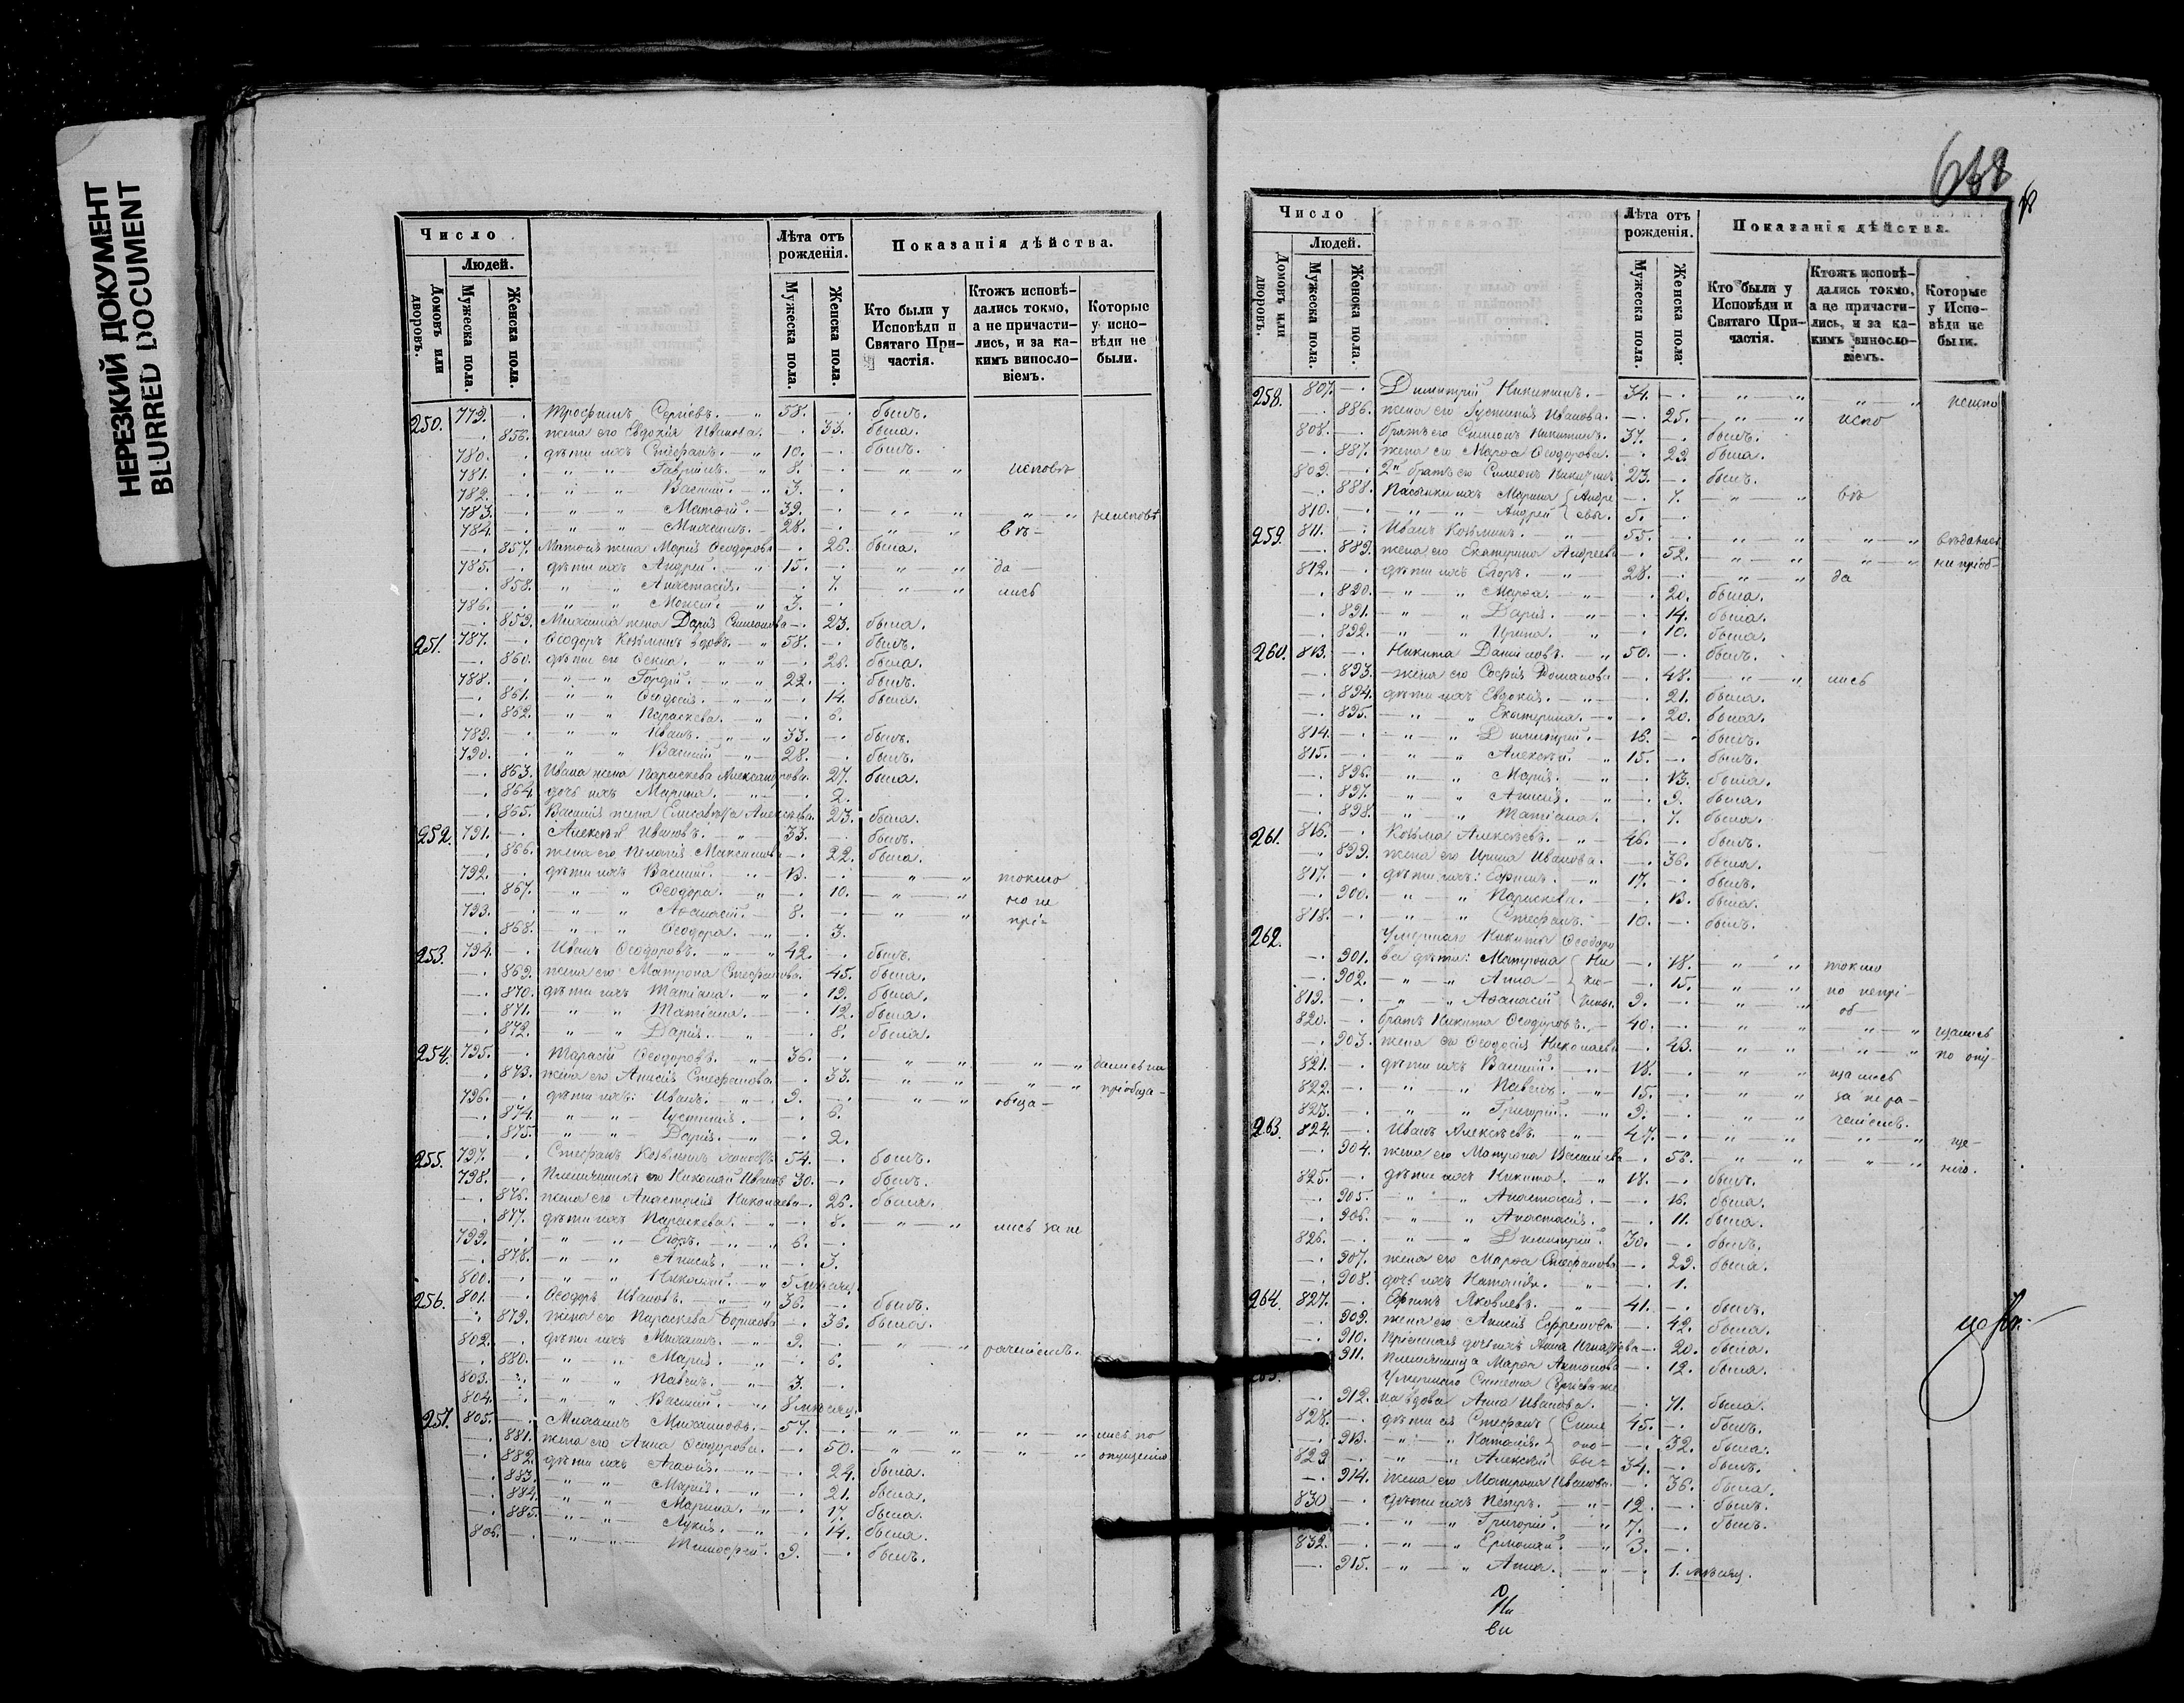 НЕРЕЗКИЙ ДОКУМЕНТ
BLURRED DOCUMENT
Число
Людей.
Домовъ или дворовъ.
Мужеска пола.
Женска пола.
Лѣта отъ рожденія.
Мужеска пола.
Женска пола.
Показанія дѣйства.
Кто были у Исповѣди и Святаго Причастія.
Ктожъ исповѣдались токмо, а не причастились, и за какимъ винословіемъ.
Которые у исповѣди не были.
250. 779. —. Трофимъ Сергіевъ. — „ 58. —. былъ.
—. 856. жена его Евдокія Иванова. —. 53. была.
780. —. дѣти ихъ Стефанъ. — „ 10. —. былъ.
781. —. „ — „ Гавріилъ. — „ 8. —. „ — „ исповѣ
782. —. „ — „ Василій. — „ 3. —.
783. —. „ — „ Матѳій. — 39. —. „ — „ „ — „ неисповѣ
784. —. „ — „ Михаилъ. — 28. —. „ — „ въ —
—. 857. Матѳія жена Марія Ѳеодорова —. 26. была.
785. —. дѣти ихъ Андрей. — „ 15. —. „ — „ да —
—. 858. „ — „ Анастасія. — —. 7. „ — „ лись
786. —. „ — „ Моисей. — „ 3. —.
—. 859. Михаила жена Дарія Симеонова —. 23. была.
251. 787. —. Ѳеодоръ Козьминъ вдовъ. — „ 58. —. былъ.
—. 860. дѣти его Ѳекла. — „ — „ —. 28. была.
788. —. „ — „ Гордій. — „ — „ 22. —. былъ.
—. 861. „ — „ Ѳеодосія. — „ —. 14. была.
—. 862. „ — „ Параскева. — „ —. 6.
789. —. „ — „ Иванъ. — „ — „ 33. —. былъ.
790. —. „ — „ Василій. — „ 28. —. былъ.
—. 863. Ивана жена Параскева Александрова. 27. была.
—. 864. дочь ихъ Марина. — „ —. 2.
—. 865. Василія жена Елисавета Алексѣева. 23. была.
252. 791. —. Алексѣй Ивановъ. — „ 33. —. былъ.
—. 866. жена его Пелагія Максимова —. 22. была.
792. —. дѣти ихъ Василій. — „ 13. —. „ — „ токмо
—. 867. „ — „ Ѳеодора. — „ —. 10. „ — „ но не
793. —. „ — „ Аѳанасій. — 8. —. „ — „ прі-
—. 868. „ — „ Ѳеодора. — „ —. 3.
253. 794. —. Иванъ Ѳеодоровъ. — „ — „ 42. —. былъ.
—. 869. жена его Матрона Стефанова. —. 45. была.
—. 870. дѣти ихъ Татіана. — „ —. 19. была.
—. 871. „ — „ Татіана. — —. 12. была.
—. 872. „ — „ Дарія. — „ —. 8. была.
254. 795. —. Тарасій Ѳеодоровъ. — „ 36. —. „ — „ „ — „ дались на
—. 873. жена его Анисія Стефанова. —. 33. „ — „ „ — „ пріобща-
796. —. дѣти ихъ: Иванъ. — „ 9. —. „ — „ обща —
—. 874. „ — „ Іустинія. — —. 6.
—. 875. „ — „ Дарія. — „ —. 2.
255. 797. —. Стефанъ Козьминъ 54. —. былъ.
798. —. Племянникъ его Николай Ивановъ 30. —. былъ.
—. 876. жена его Анастасія Николаева —. 26. была.
—. 877. дѣти ихъ Параскева. — „ —. 8. „ — „ лись за не
799. —. „ — „ Егоръ. — „ — „ 6. —.
—. 878. „ — „ Анисія. — „ —. 3.
800. —. „ — „ Николай. — „ 5 мѣсяц.
256. 801. —. Ѳеодоръ Ивановъ. — „ 36. —. былъ.
—. 879. жена его Параскева Борисова —. 36. была.
802. —. дѣти ихъ Михаилъ. — „ 9. —. „ — „ раченіемъ.
—. 880. „ — „ Марія. — „ —. 6.
803. —. „ — „ Павелъ. — „ 3. —.
804. —. „ — „ Василій. — „ 8 мѣсяц.
257. 805. —. Михаилъ Михаиловъ. — 57. —. „ — „ „ — „ лись по
—. 881. жена его Анна Ѳеодорова. —. 50. „ — „ „ — „ опущенію
—. 882. дѣти ихъ Агафія. — „ —. 24. была.
—. 883. „ — „ Марія. — „ —. 21. была.
—. 884. „ — „ Марина. — „ —. 17. была.
—. 885. „ — „ Лукія. — „ —. 14. была.
806. —. „ — „ Тимоѳей. 9. —. былъ.
Число
Людей.
Домовъ или дворовъ.
Мужеска пола.
Женска пола.
Лѣта отъ рожденія.
Мужеска пола.
Женска пола.
Показанія дѣйства.
Кто были у Исповѣди и Святаго Причастія.
Ктожъ исповѣдались токмо, а не причастились, и за какимъ винословіемъ.
Которые у Исповѣди не были.
258. 807. —. Димитрій Никитинъ. — 34. —. „ — „ „ — „ неиспо
—. 886. жена его Іустинія Иванова. —. 25. „ — „ испо
808. —. братъ его Симеонъ Никитинъ. 37. —. былъ.
—. 887. жена его Марѳа Ѳеодорова. —. 29. была.
809. —. 2й братъ его Симеонъ Никитинъ 23. —. былъ.
—. 888. Пасынки ихъ Марина { Андре —. 7. „ — „ въ
810. —. „ — „ Андрей { евы. 5. —.
259. 811. —. Иванъ Козьминъ. — „ 55. —. „ — „ „ — „ вѣдались
—. 889. жена его Екатерина Андреева —. 52. „ — „ „ — „ ни пріоб-
812. —. дѣти ихъ Егоръ. — „ 28. —. „ — „ да
—. 890. „ — „ Марѳа. — „ —. 20. была.
—. 891. „ — „ Дарія. — „ —. 14. была.
—. 892. „ — „ Ирина. — „ —. 10. была.
260. 813. —. Никита Даниловъ. — „ 50. —. былъ.
—. 893. жена его Софія Романова —. 48. „ — „ лись
—. 894. дѣти ихъ Евдокія. — „ —. 21. была.
—. 895. „ — „ Екатерина. — „ —. 20. была.
814. —. „ — „ Димитрій. — 16. —. былъ.
815. —. „ — „ Алексѣй. — „ 15. —. былъ.
—. 896. „ — „ Марія. — „ —. 13. была.
—. 897. „ — „ Анисія. — „ —. 9. была.
—. 898. „ — „ Татіана. — —. 7. была.
261. 816. —. Козьма Алексѣевъ. — „ 46. —. былъ.
—. 899. жена его Ирина Иванова. —. 36. была.
817. —. дѣти ихъ: Ефимъ. — „ 17. —. былъ.
—. 900. „ — „ Параскева. — —. 13. была.
818. —. „ — „ Стефанъ. — 10. —. былъ.
262. Умершаго Никиты Ѳеодоро
—. 901. ва дѣти: Матрона { Ни —. 18. „ — „ токмо
—. 902. „ — „ Анна — { ки- —. 15. „ — „ но непрі-
819. —. „ — „ Аѳанасій { тины. 9. —. „ — „ об —
820. —. братъ Никита Ѳеодоровъ. — 40. —. „ — „ „ — „ щались
—. 903. жена его Ѳеодосія Николаева —. 43. „ — „ „ — „ по опу-
821. —. дѣти ихъ Василій. — „ 18. —. „ — „ щались
822. —. „ — „ Павелъ. — „ 15. —. „ — „ за нера-
823. —. „ — „ Григорій. — „ 9. —. „ — „ ченіемъ.
263. 824. —. Иванъ Алексѣевъ. — „ 47. —. „ — „ „ — „ ще-
—. 904. жена его Матрона Васильева —. 56. „ — „ „ — „ нію.
825. —. дѣти ихъ Никита. — „ 18. —. былъ.
—. 905. „ — „ Анастасія. — —. 16. была.
—. 906. „ — „ Анастасія. — —. 11. была.
826. —. „ — „ Димитрій. 30. —. былъ.
—. 907. жена его Марѳа Стефанова —. 29. была.
—. 908. дочь ихъ Наталія. — „ —. 1.
264. 827. —. Ефимъ Яковлевъ. — „ 41. —. былъ.
—. 909. жена его Анисія Ефремова —. 42. была.
—. 910. Пріемная дочь ихъ Анна Игнатьева —. 20. была.
—. 911. Племянница Марѳа Антонова —. 12. была.
265. Умершаго Симеона Сергіева же
—. 912. на вдова Анна Иванова. —. 71. была.
828. —. дѣти ея Стефанъ { Симе 45. —. былъ.
—. 913. „ — „ Наталія. { оно- —. 32. была.
829. —. „ — „ Алексѣй { вы — 34. —. былъ.
—. 914. жена его Матрона Иванова. —. 36. была.
830. —. дѣти ихъ Петръ. — „ 12. —. былъ.
—. „ — „ Григорій. — „ 7. —. былъ.
832. —. „ — „ Ермолай. — „ 3. —.
—. 915. „ — „ Анна. — „ —. 1. мѣсяц.